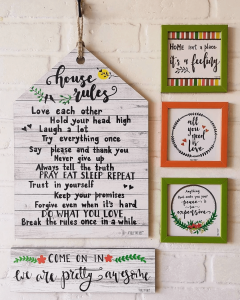 house
rules
Love each other
Hold your head high
Laugh a lot
Try everything once
Say please and thank you
Never give up
Always tell the truth
PRAY EAT SLEEP REPEAT
Trust in yourself
Keep your promises
Forgive even when it's hard
DO WHAT YOU LOVE
Break the rules once in a while
COME ON IN
we are pretty awesome
HOME isn't a place
it's a feeling
all
you
need
is
love
Anything
that costs your
peace is
too
expensive